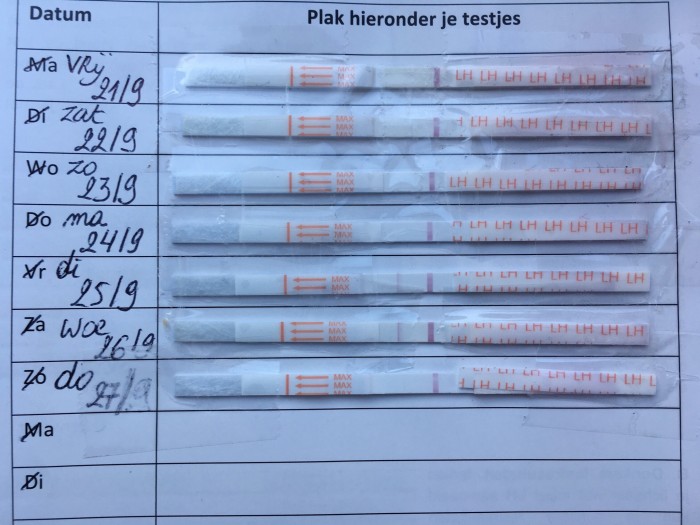 Datum Plak hieronder je testjes
Ma Vrij 21/9
MAX MAX LH LH LH LH LH LH LH LH
Di zat 22/9
MAX MAX LH LH LH LH LH LH LH
Wo zo 23/9
MAX MAX LH LH LH LH LH LH LH LH
Do ma 24/9
MAX MAX LH LH LH LH LH LH LH
Vr di 25/9
MAX MAX LH LH LH LH LH LH LH
Za woe 26/9
MAX MAX MAX LH LH LH LH LH LH LH
Zo do 27/9
MAX MAX MAX LH LH LH LH LH LH LH
Ma
Di